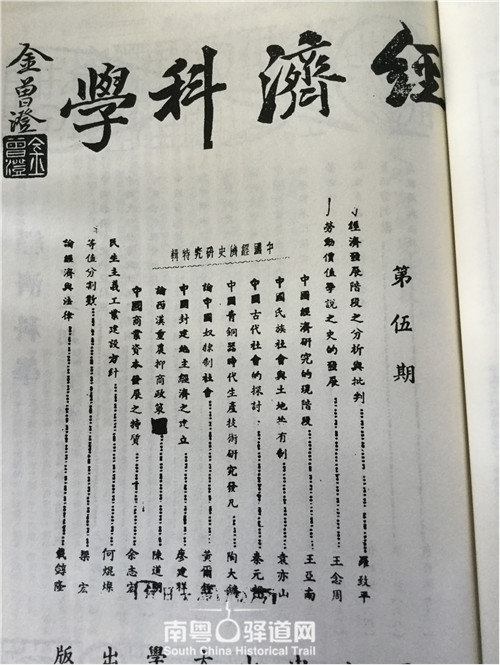 經濟科學
金曾澄
第伍期
經濟發展階段之分析與批判 羅致平
勞動價值學說之史的發展 王念周
中國經濟史研究特輯
中國經濟研究的現階段 王亞南
中國民族社會與土地共有制 袁亦山
中國古代社會的探討 秦元
中國青銅器時代生產技術研究發凡 陶大
論中國奴隸制社會 黃爾
中國封建地主經濟之建立 廖建祥
論西漢重農抑商政策 陳道
中國商業資本發展之特質 余志宏
民生主義工業建設方針 何焜燦
等值分割數 梁宏
論經濟與法律 隆
版 出 學 大
南粤驿道网
South China Historical Trail